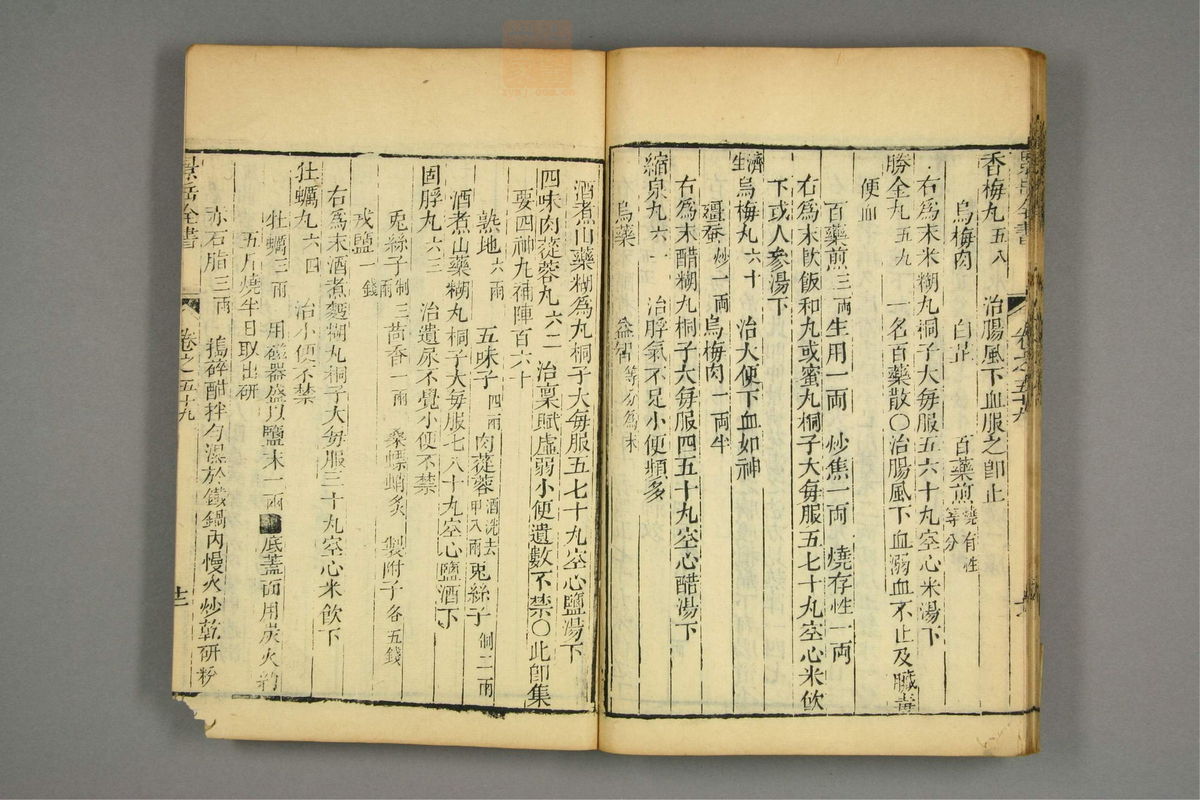 香梅丸五八 治腸風下血服之卽止
烏梅肉 白芷 百藥煎燒存性等分
右爲末米糊丸桐子大每服五六十丸空心米湯下
勝金丸五九 一名百藥散〇治腸風下血溺血不止及臟毒
便血
百藥煎三兩生用一兩 炒焦一兩 燒存性一兩
右爲末飲飯和丸或蜜丸桐子大每服五七十丸空心米飲
下或人參湯下
濟生烏梅丸六十 治大便下血如神
殭蠶炒一兩烏梅肉一兩半
右爲末醋糊丸桐子大每服四五十丸空心醋湯下
縮泉丸六一 治脬氣不足小便頻多
烏藥 益智等分爲末
酒煮山藥糊爲丸桐子大每服五七十丸空心鹽湯下
四味肉蓯蓉丸六二 治稟賦虛弱小便遺數不禁〇此卽集
要四神丸補陣百六十
熟地六兩 五味子四兩 肉蓯蓉酒洗去甲八兩菟絲子制二兩
酒煮山藥糊丸桐子大每服七八十丸空心鹽酒下
固脬丸六三 治遺尿不覺小便不禁
兎絲子制三兩茴香一兩 桑螵蛸炙 製附子各五錢
戎鹽一錢
右爲末酒煮麪糊丸桐子大每服三十丸空心米飲下
牡蠣丸六四 治小便不禁
牡蠣三兩 用磁器盛以鹽末一兩底蓋面用炭火約
五斤燒半日取出研
赤石脂三兩 搗碎醋拌勻濕於鐵鍋內慢火炒乾研粉
景岳全書 卷之五十九 廿